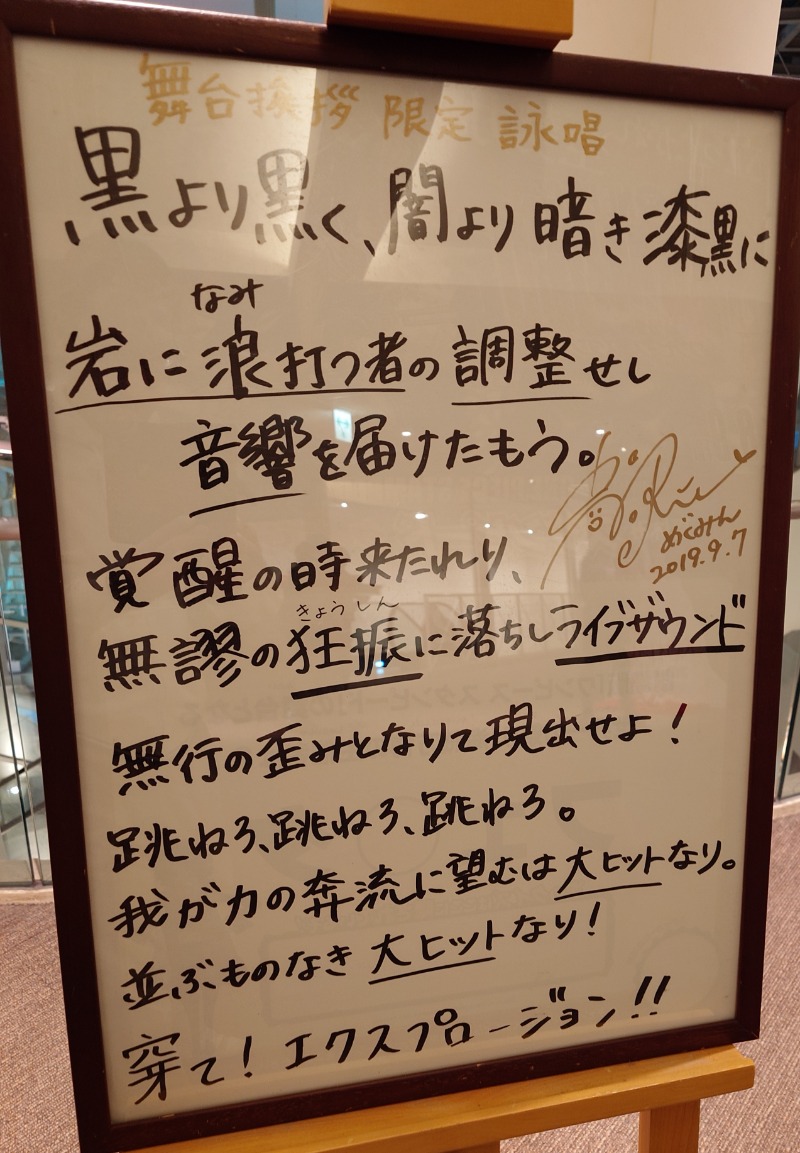 舞台挨拶 限定 詠唱
黒より黒く、闇より暗き漆黒に
なみ
岩に浪打つ者の調整せし
音響を届けたもう。
めぐみん
2019.9.7
覚醒の時来たれり、
きょうしん
無謬の狂振に落ちしライブザウンド
無行の歪みとなりて現出せよ!
跳ねろ、跳ねろ、跳ねろ。
我が力の奔流に望むは大ヒットなり。
並ぶものなき大ヒットなり!
穿て!エクスプロージョン!!